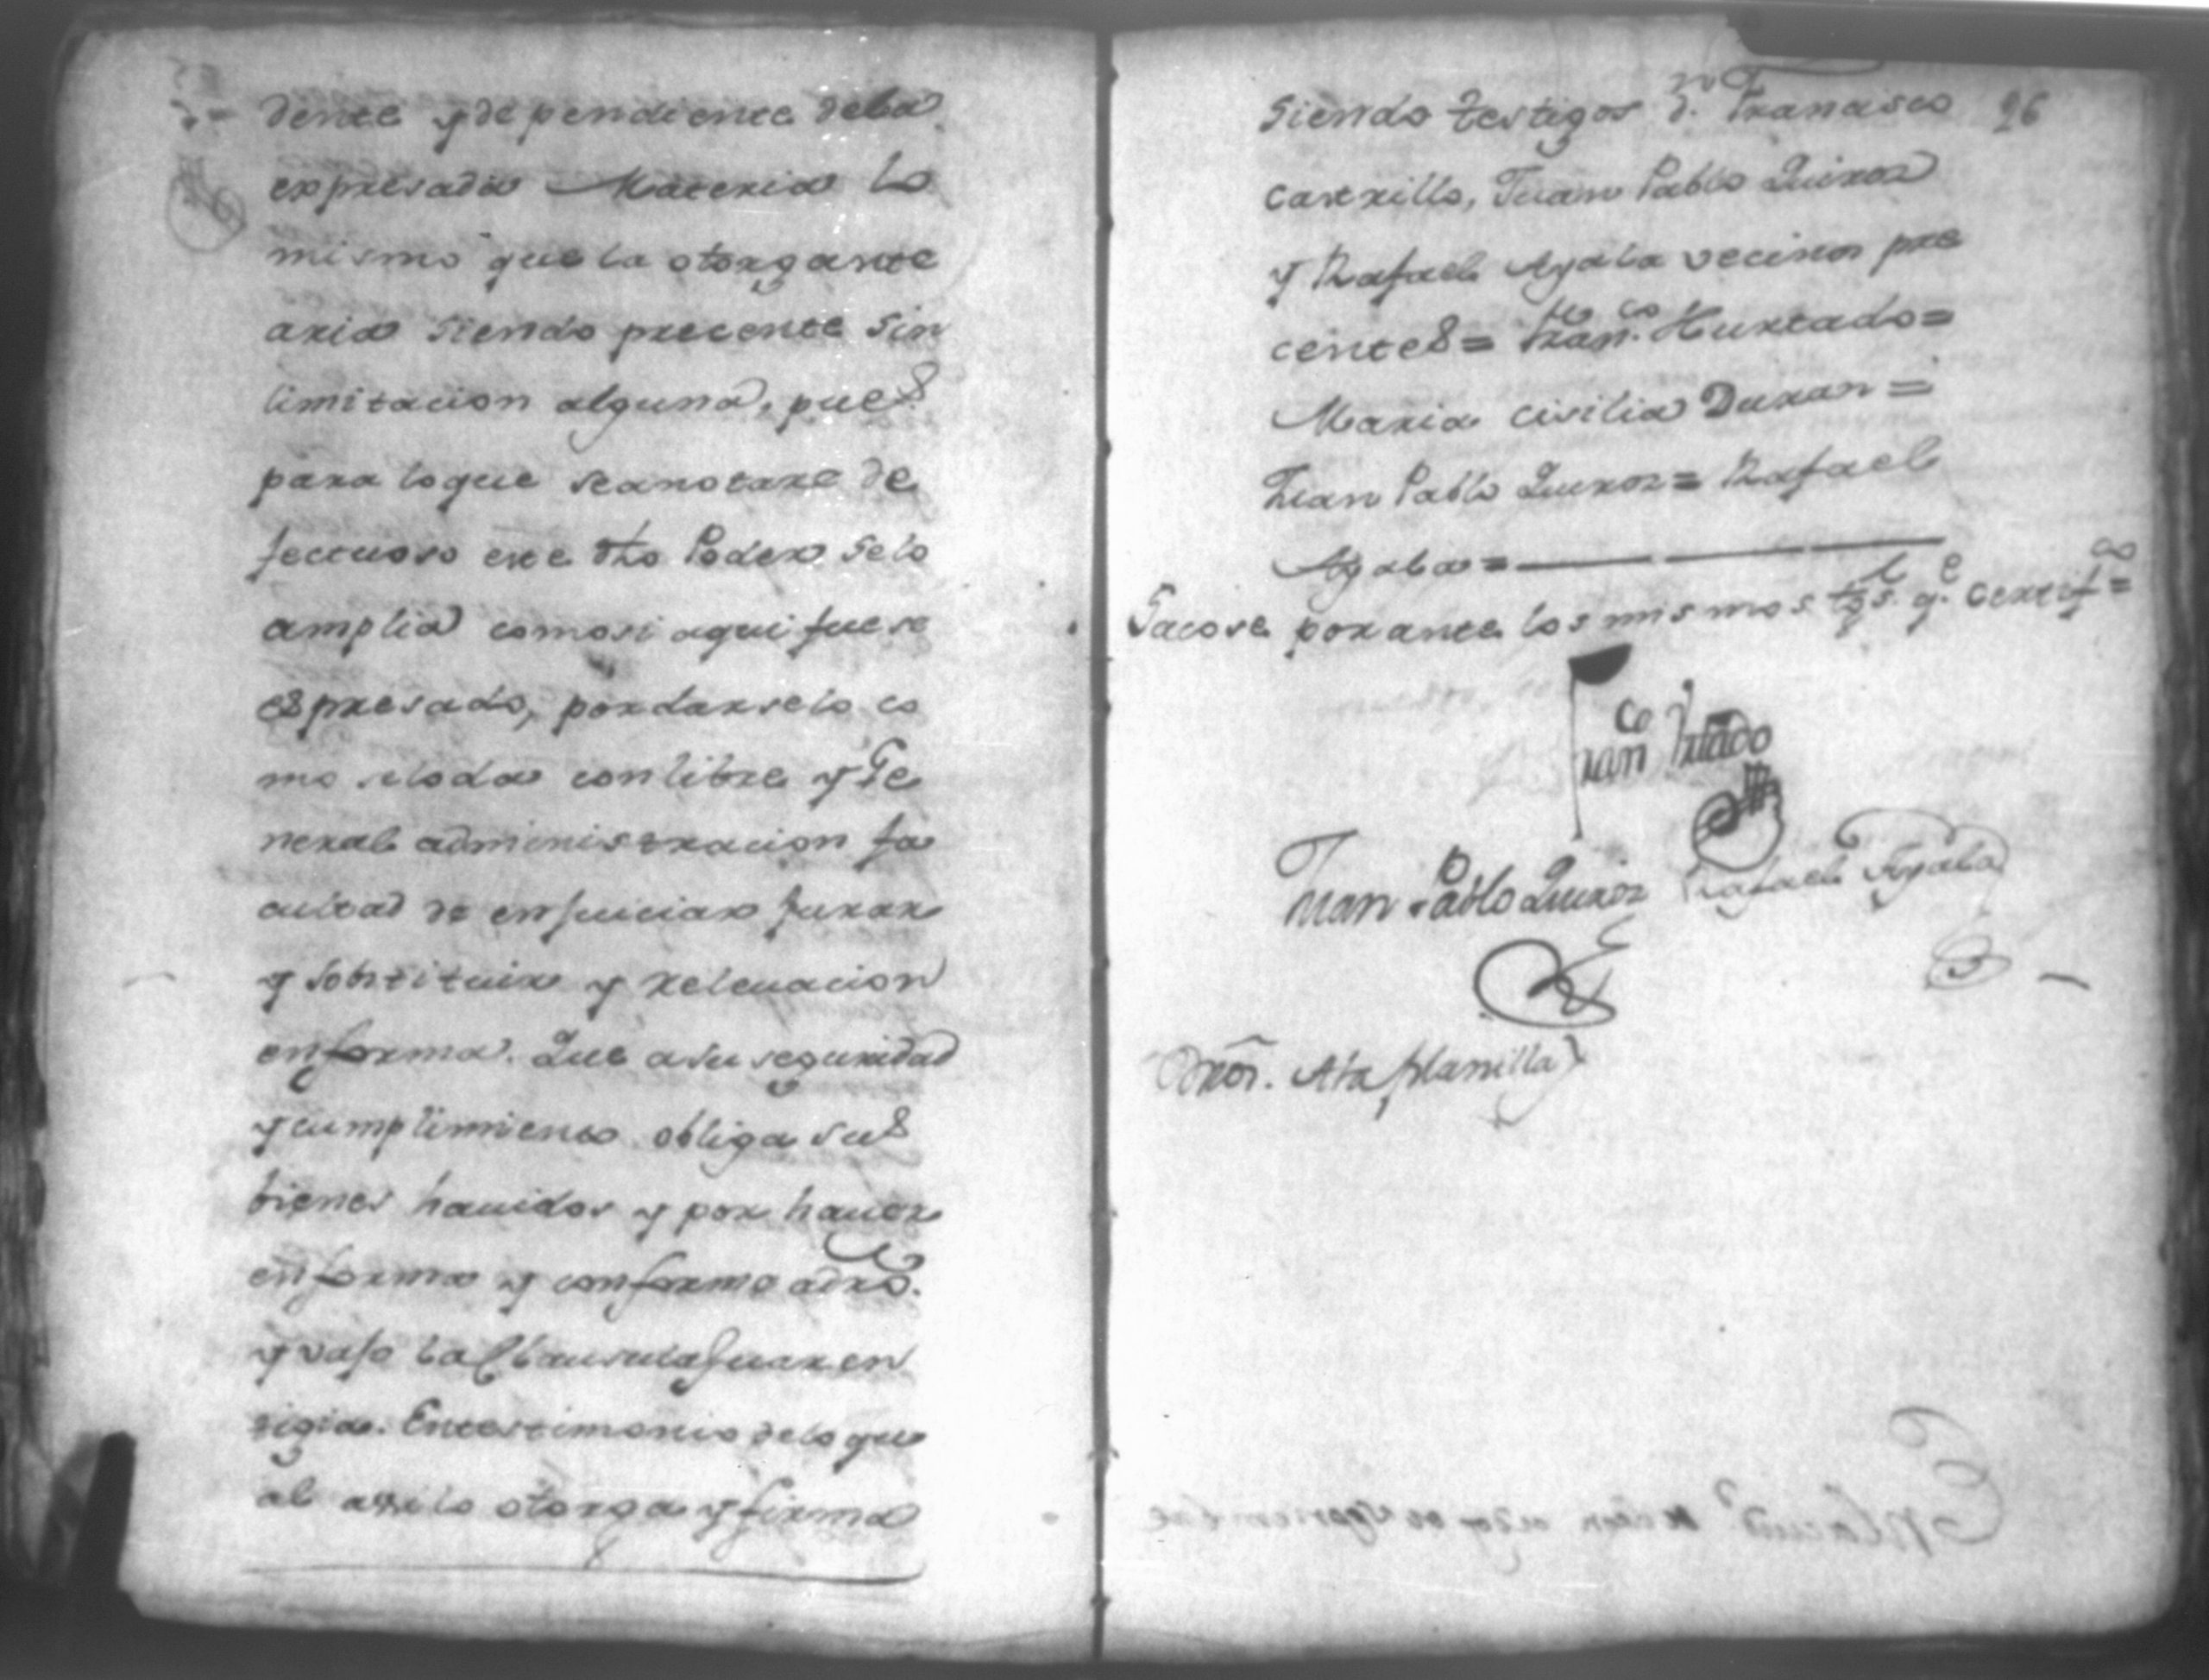 dente y de pendiente dela
expresada Materia lo
mismo que la otorgante
aria siendo precente sin
limitacion alguna, pues
para loque seanotare de
fectuoso ene dho Poder selo
amplia comosi aqui fuese
espresado, pordarselo co
mo seloda conlibre y Ge
neral administracion fa
cultad de enjuiciar jurar
y sobstituir y relevacion
enforma. Que asu seguridad
y cumplimiento obliga sus
bienes havidos y por haver
enforma y conforme adro.
y vajo la Clausula guaren
tigia. Entestimonio delo qu
al assi lo otorga y firma
siendo testigos dn. Francisco 26
Castrillo, Juan Pablo Quiroz
y Rafael Ayala vecinos pre
centes = Franco. Hurtado =
Maria Cisilia Duran =
Juan Pablo Quiroz = Rafael
Ayala =
Sacose porante los mismos tgs. qe. certifco =
Franco Hurtado
Juan Pablo Quiroz Rafael Ayala